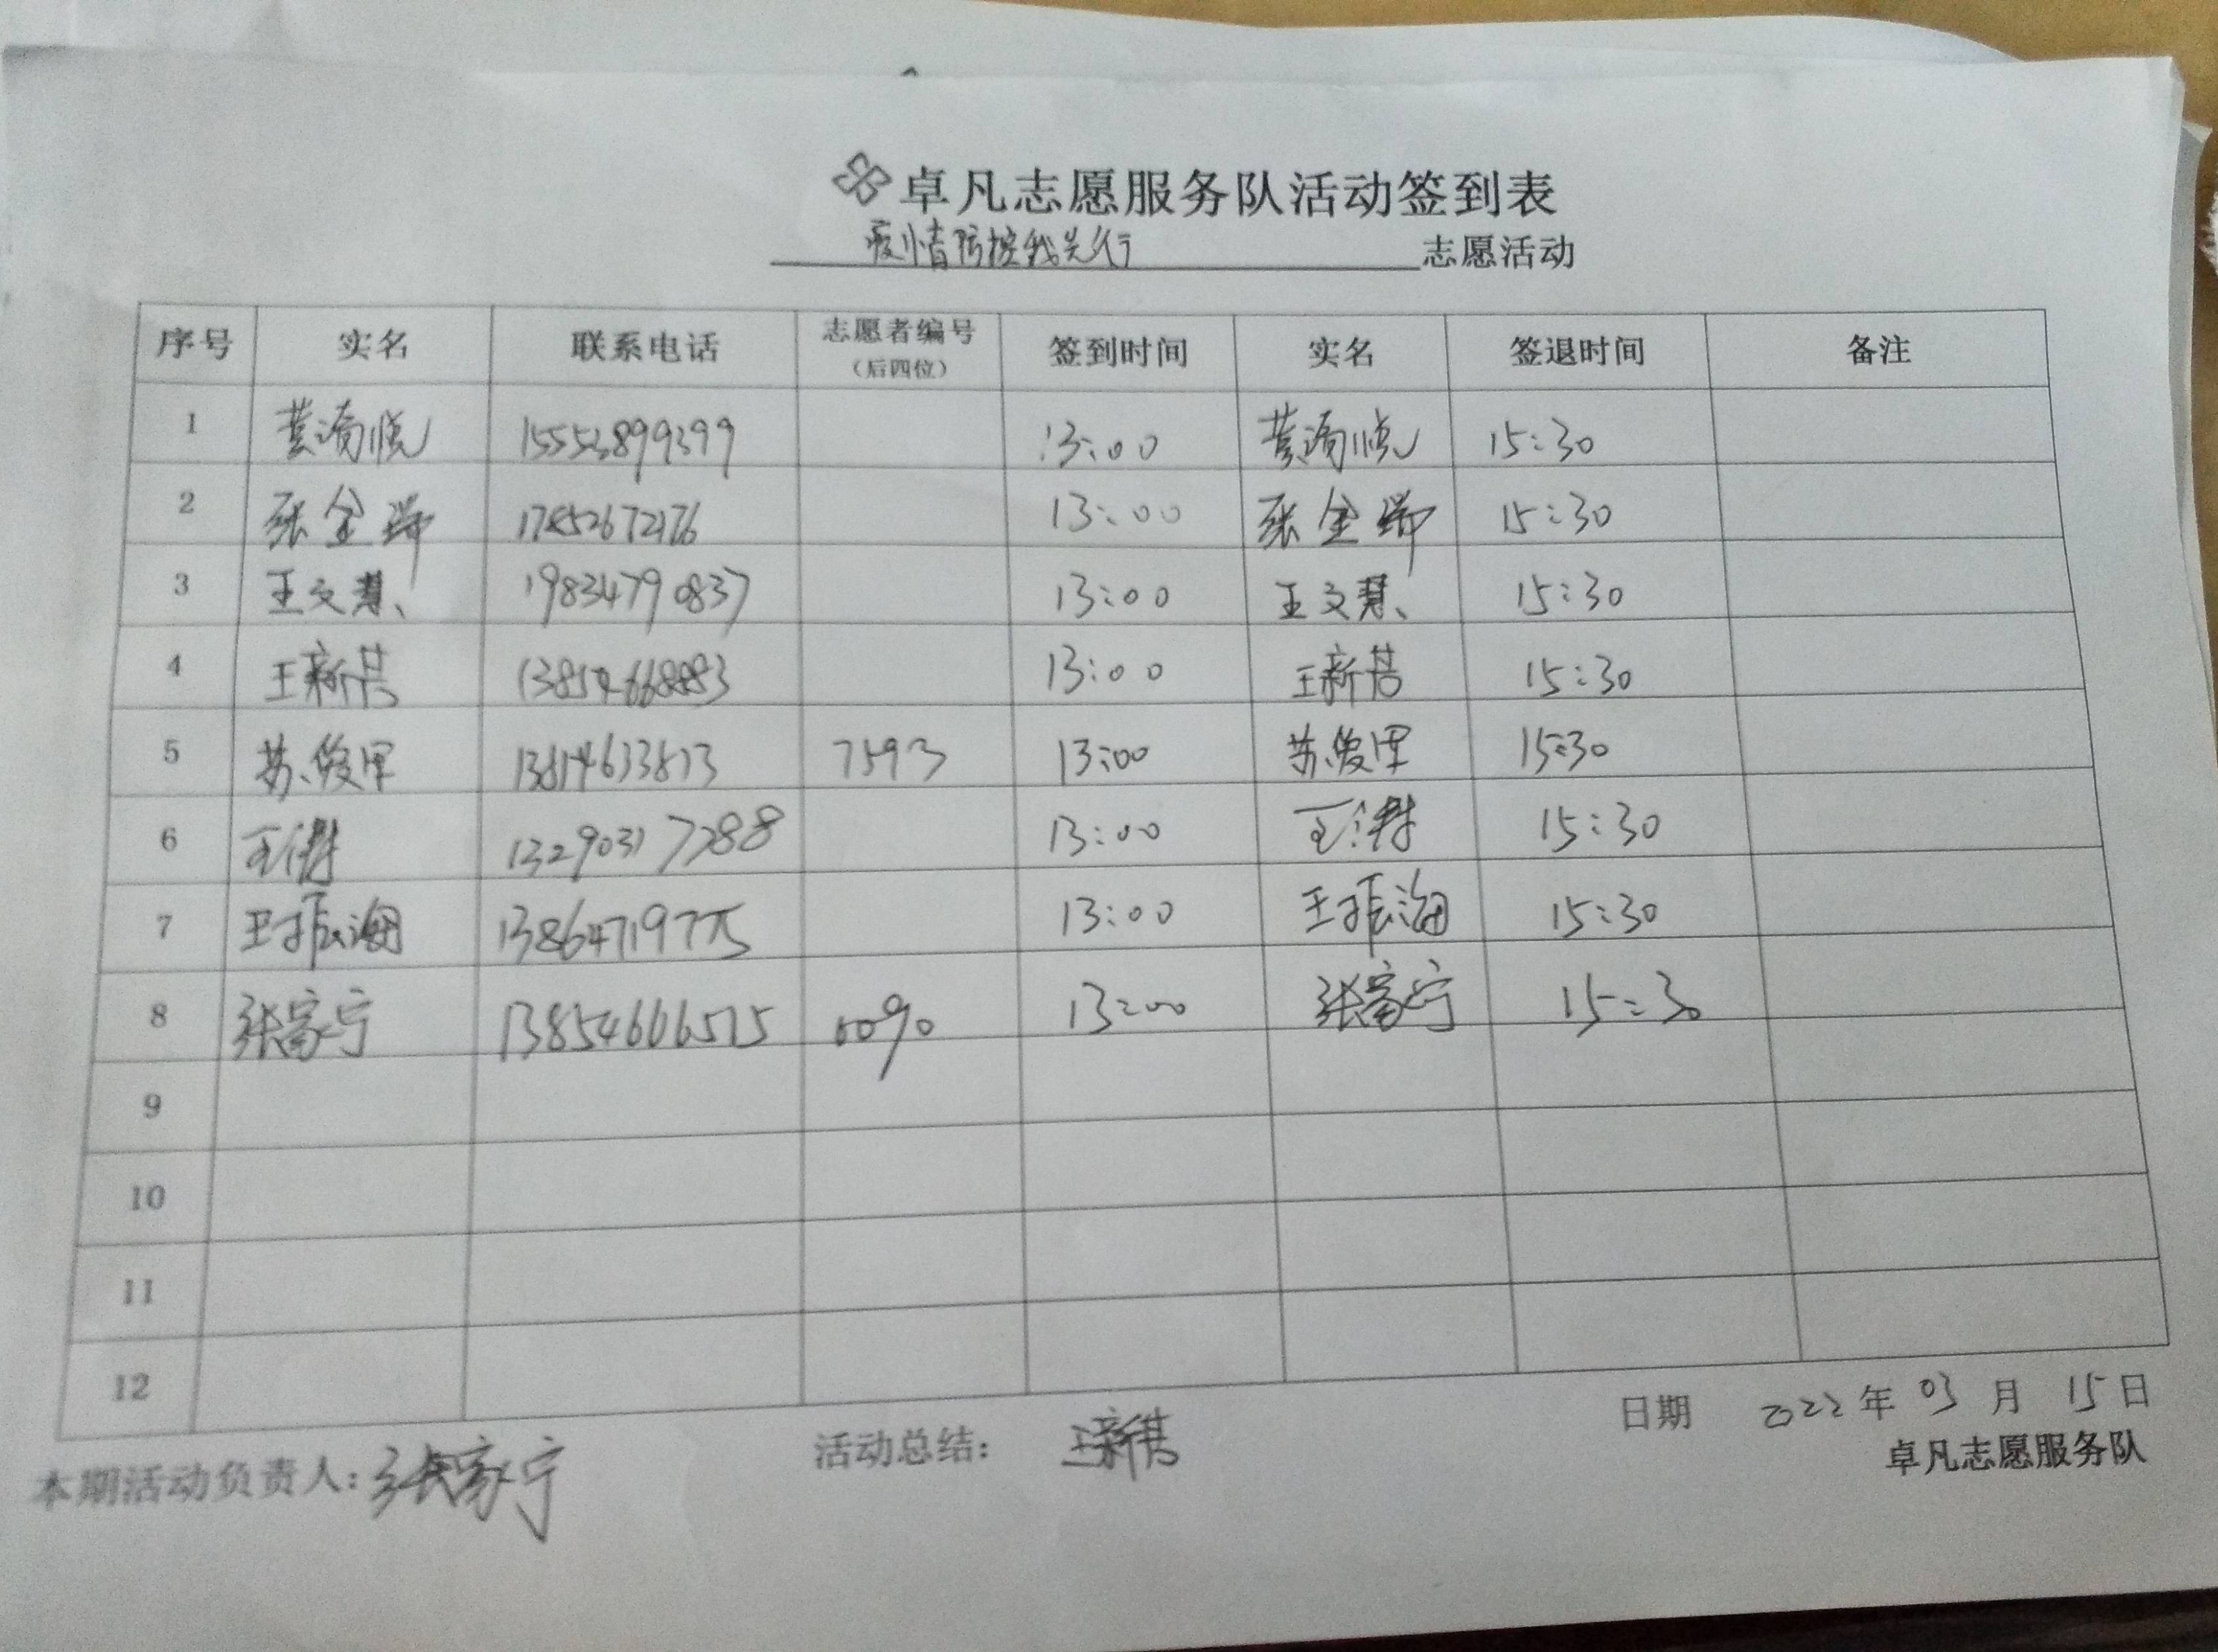 卓凡志愿服务队活动签到表
疫情防控我先行 志愿活动
序号 实名 联系电话 志愿者编号（后四位） 签到时间 实名 签退时间 备注
1 13:00 15:30
2 张金瑞 13:00 张金瑞 15:30
3 王文慧 19834790837 13:00 王文慧 15:30
4 王新茗 13:00 王新茗 15:30
5 苏俊军 7593 13:00 苏俊军 15:30
6 13290317288 13:00 15:30
7 王振海 13864719775 13:00 王振海 15:30
8 张家宁 13854606575 13:00 张家宁 15:30
9
10
11
12
本期活动负责人：张家宁 活动总结： 王新茗 日期 2022 年 03 月 15 日
卓凡志愿服务队